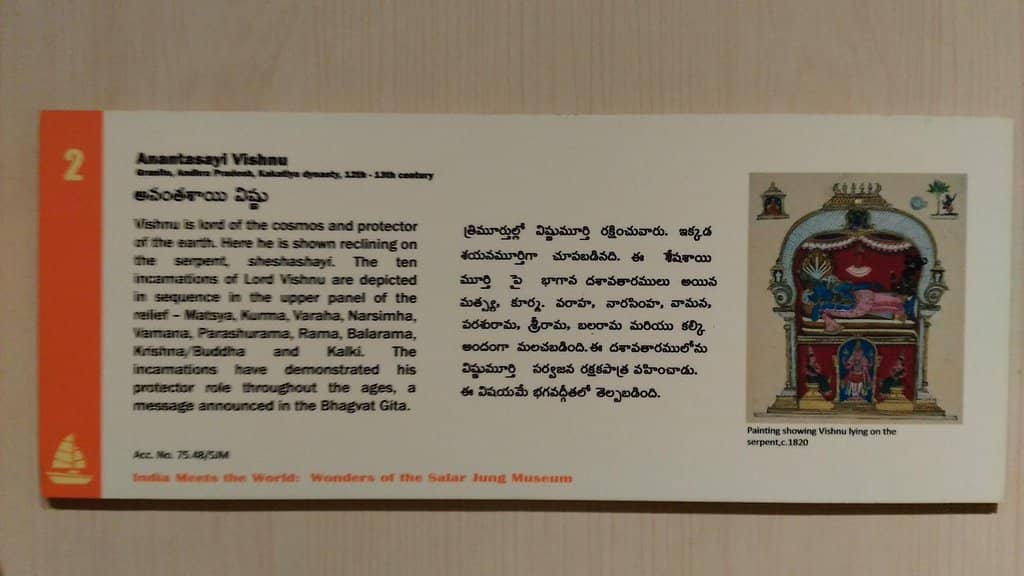 2
Anantasayi Vishnu
Granite, Andhra Pradesh, Kakatiya dynasty, 12th - 13th century
అనంతశాయి విష్ణు
Vishnu is lord of the cosmos and protector
of the earth. Here he is shown reclining on
the serpent, sheshashayi. The ten
incarnations of Lord Vishnu are depicted
in sequence in the upper panel of the
relief – Matsya, Kurma, Varaha, Narsimha,
Vamana, Parashurama, Rama, Balarama,
Krishna/Buddha and Kalki. The
incarnations have demonstrated his
protector role throughout the ages, a
message announced in the Bhagvat Gita.
త్రిమూర్తుల్లో విష్ణుమూర్తి రక్షించువారు. ఇక్కడ
శయనమూర్తిగా చూపబడినది. ఈ శేషశాయి
మూర్తి పై భాగాన దశావతారములు అయిన
మత్స్య, కూర్మ. వరాహ, నారసింహ, వామన,
పరశురామ, శ్రీరామ, బలరామ మరియు కల్కి
అందంగా మలచబడింది. ఈ దశావతారములోను
విష్ణుమూర్తి సర్వజన రక్షకపాత్ర వహించాడు.
ఈ విషయమే భగవద్గీతలో తెల్పబడింది.
Painting showing Vishnu lying on the
serpent,c.1820
Acc. No. 75.48/SJM
India Meets the World: Wonders of the Salar Jung Museum